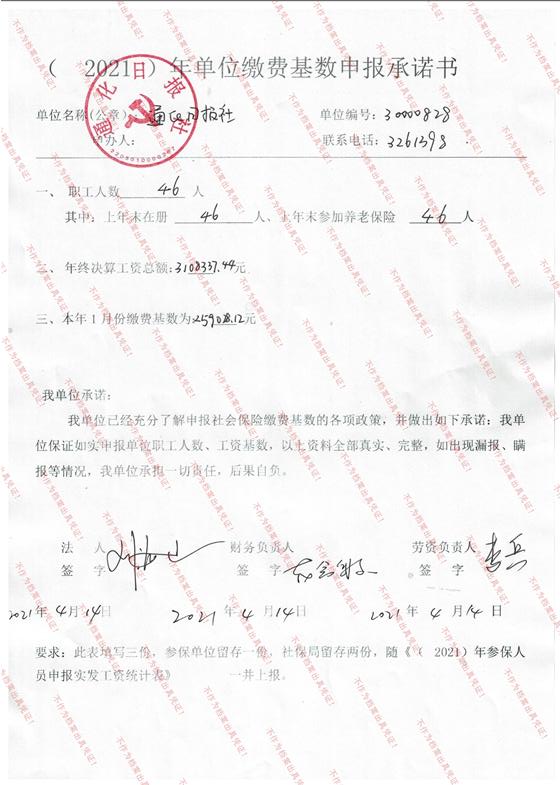 （ 2021 ）年单位缴费基数申报承诺书
单位名称(公章): 通化日报社 单位编号: 30000828
经办人: 联系电话: 3261398
通化日报社
2205010000267
一、 职工人数 46 人
其中: 上年末在册 46 人、上年末参加养老保险 46 人
二、 年终决算工资总额: 3108337.44元
三、本年 1 月份缴费基数为 259028.12元
我单位承诺:
我单位已经充分了解申报社会保险缴费基数的各项政策，并做出如下承诺: 我单
位保证如实申报单位职工人数、工资基数，以上资料全部真实、完整，如出现漏报、瞒
报等情况，我单位承担一切责任，后果自负。
法 人 财务负责人 劳资负责人
签 字 签 字 签 字 李兵
2021年 4月 14日 2021 年 4 月 14日 2021 年 4 月 14 日
要求: 此表填写三份，参保单位留存一份，社保局留存两份，随《（ 2021）年参保人
员申报实发工资统计表》 一并上报。
不作为档案出具凭证!